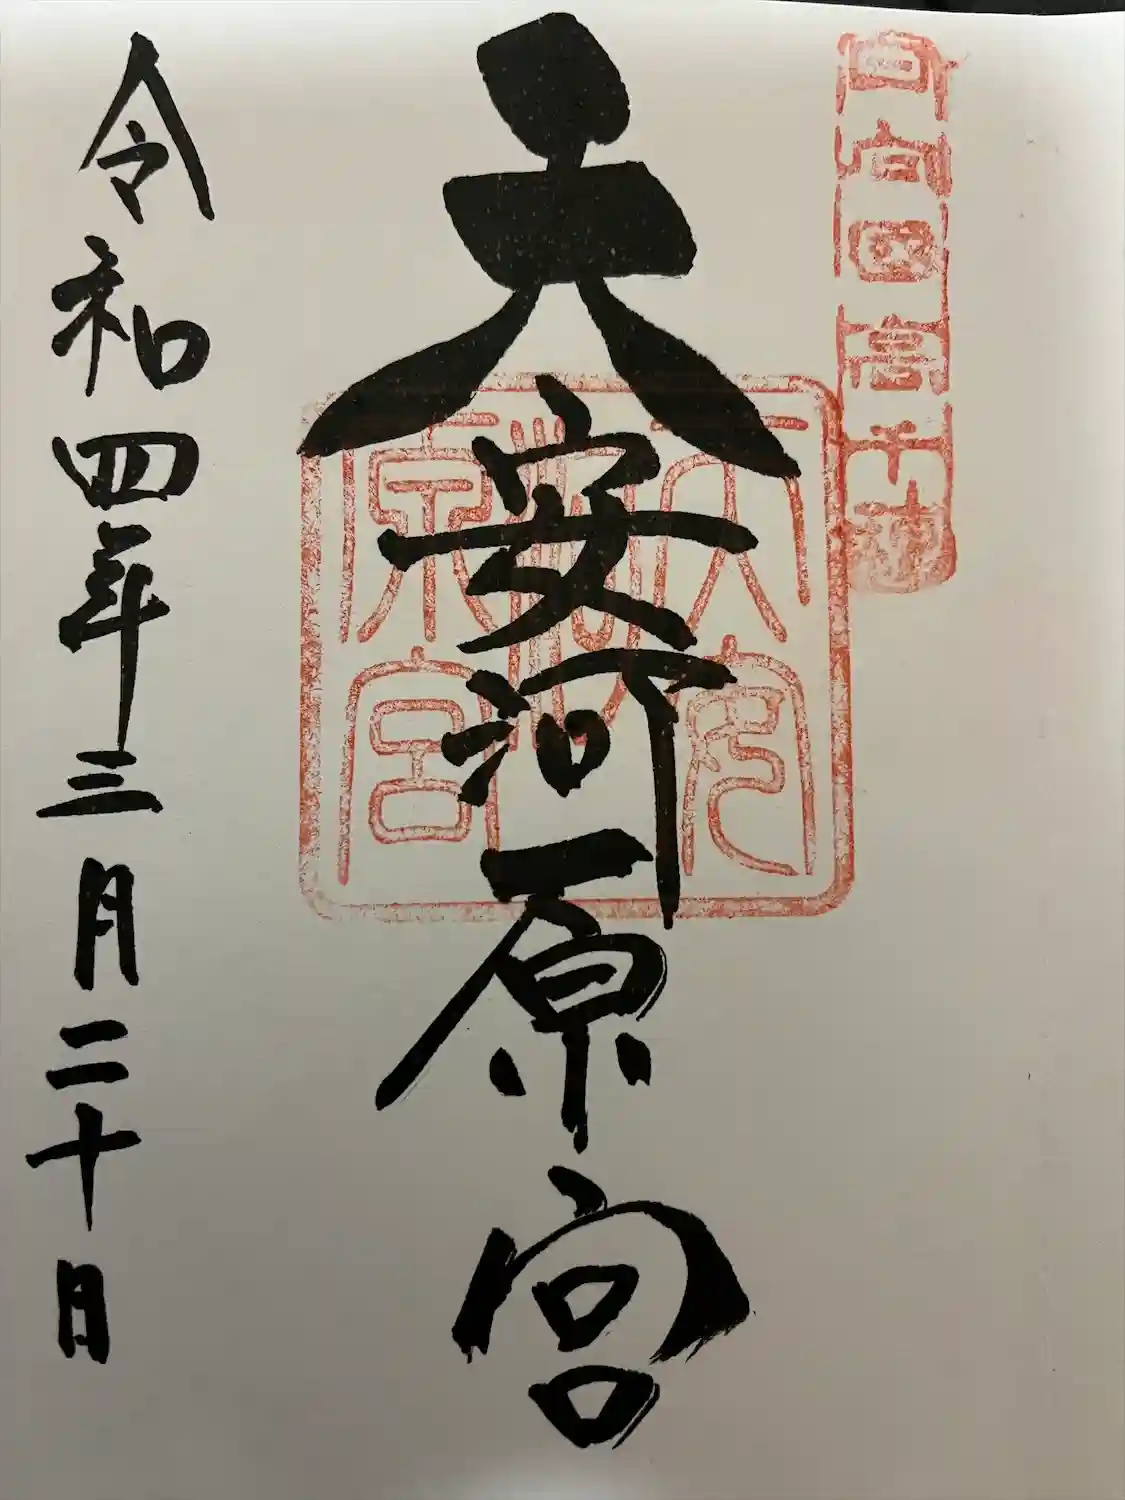 日向国高千穂
天安河原宮
天安河原宮
令和四年三月二十日